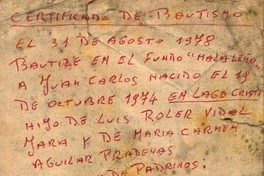 CERTIFICADO DE BAUTISMO
EL 31 DE AGOSTO 1978
BAUTIZE EN EL FUNDO "MALALEHUE"
A JUAN CARLOS NACIDO EL 19
DE OCTUBRE 1974 EN LAGO CRISTI
HIJO DE LUIS ROLER VIDAL
JARA Y DE MARIA CARMEN
AGUILAR PRADENAS
DE PADRINOS: